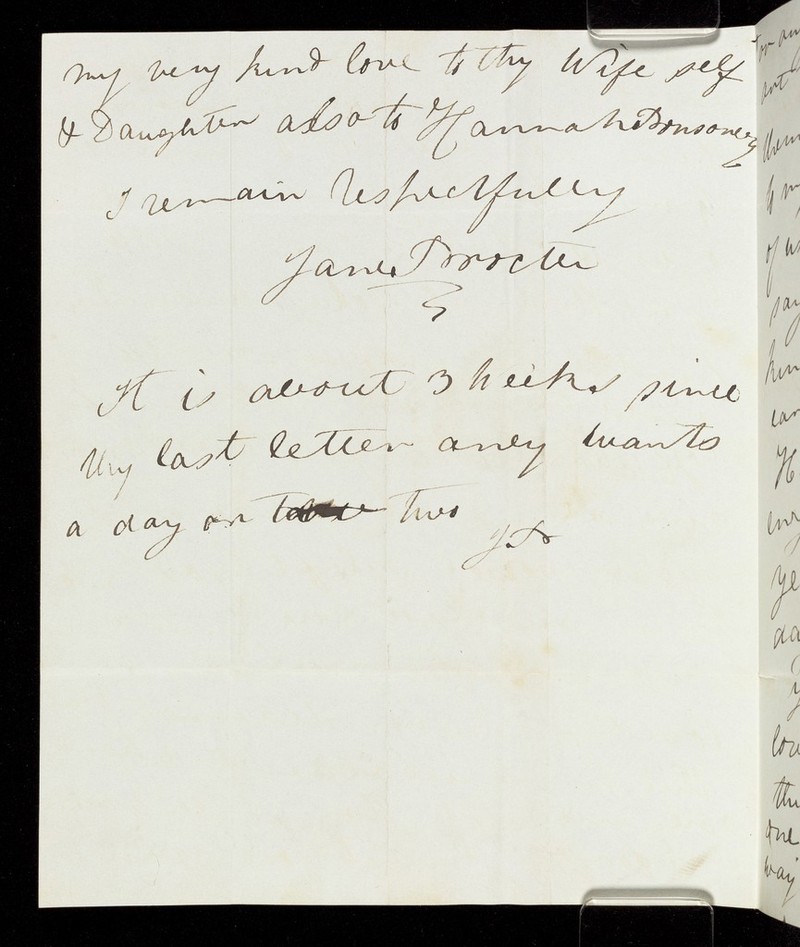 my very kind love to thy Wife self
& Daughter also to Hannah
I remain respectfully
Jane Procter
It is about 3 weeks since
thy last letter wants
a day or two
J. P.